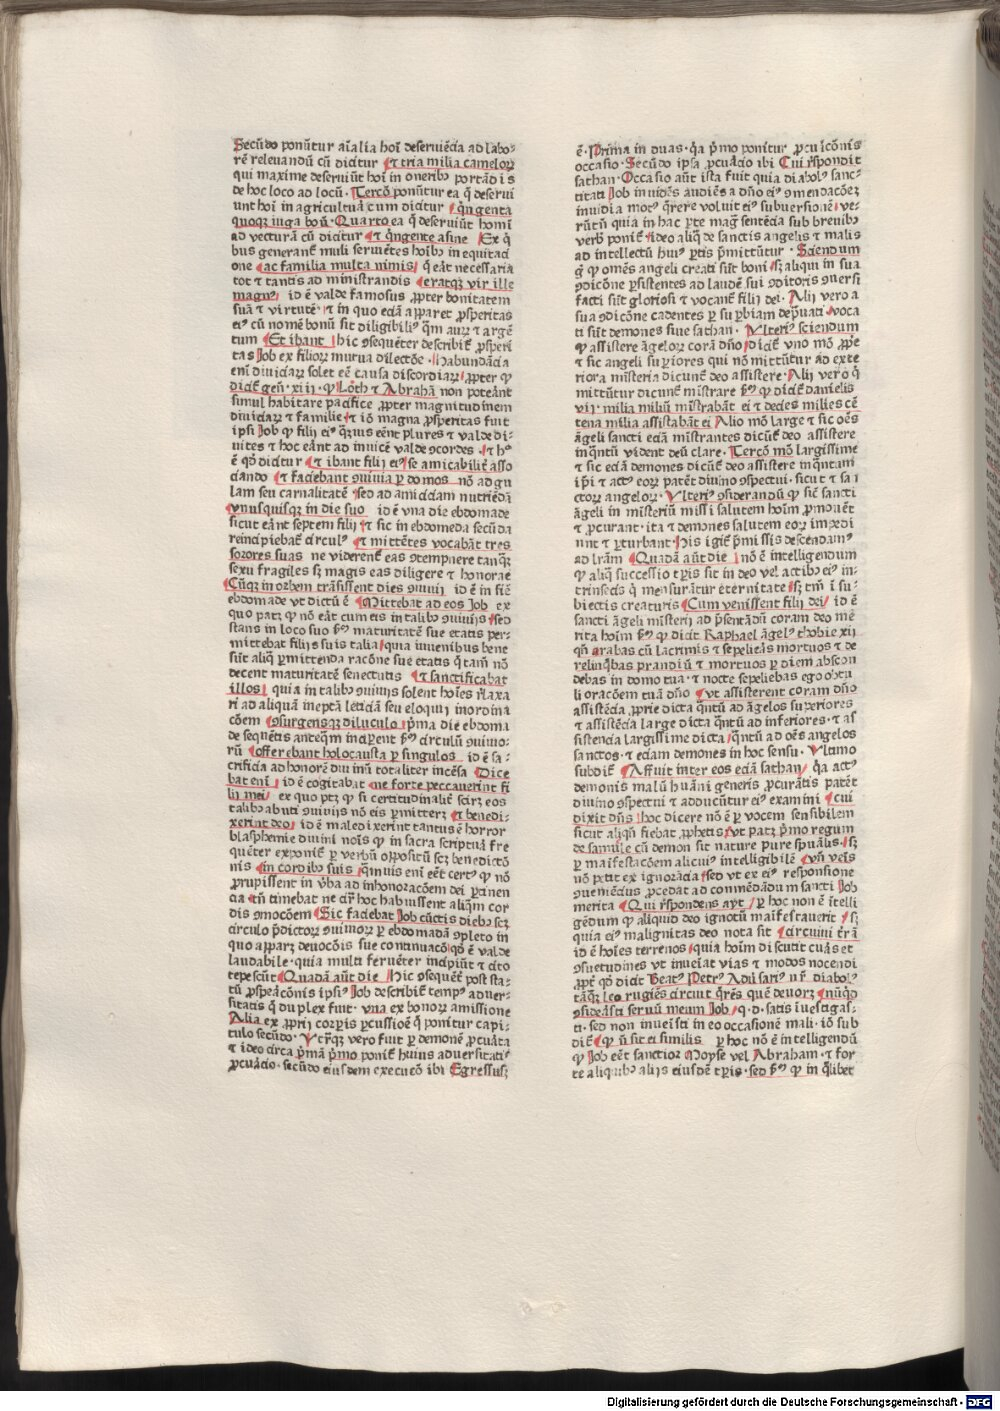 Secūdo ponūtur aīalia hoī deserviēcia ad labo⸗
rē relevandū cū dicitur ⁊ tria milia camelorꝝ
qui maxime deserviūt hoī in oneribꝰ portādis
de hoc loco ad locū. Tercō ponūtur ea q̄ deservi
unt hoi in agricultura cum dicitur q̄ngenta
quoqꝫ iuga boū. Quarto ea q̄ deserviūt homī
ad vecturā cū dicitur ⁊ q̄ngente asine Ex q̄
bus generant̄ muli servientes hoībꝰ in equitaci
one ac familia multa nimis q̄ eāt necessaria
tot ⁊ tantis ad ministrandis eratqꝫ vir ille
magnꝰ id ē valde famosus ꝓpter bonitatem
suā ⁊ virtutē ⁊ in quo eciā apparet ꝓsperitas
eiꝰ cū nomē bonū sit diligibiliꝰ q̄m aurꝝ ⁊ argē
tum Et ibant hic ꝯsequēter describit̄ ꝓsperi
tas Job ex filiorꝝ mutua dilectōe. Habundācia
enī diviciarꝝ solet eē causa discordiarꝝ ꝓpter ꝙ
dicit̄ gen̄. xiij. ꝙ Loth ⁊ Abrahā non poteāt
simul habitare pacifice ꝓpter magnitudinem
diviciarꝝ ⁊ familie ⁊ iō magna ꝓsperitas fuit
ipsi Job ꝙ filij eiꝰ q̄mvis eēnt plures ⁊ valde di⸗
vites ⁊ hoc eāt ad invicē valde ꝯcordes. ⁊ hᵒ
ē qō dicitur ⁊ ibant filij eiꝰ se amicabilit̄ asso
ciando ⁊ faciebant ꝯvivia ꝑ domos nō ad gu
lam seu carnalitatē sed ad amiciciam nutriēdā
unusquisqꝫ in die suo id ē vna die ebdomade
sicut eānt septem filij ⁊ sic in ebdomeda secūda
reincipiebat̄ circulꝰ ⁊ mittētes vocabāt tres
sorores suas ne viderent̄ eas ꝯtempnere tanqꝫ
sexu fragiles sꝫ magis eas diligere ⁊ honorae
Cūqꝫ in orbem trāsissent dies ꝯvivij id ē in fiē
ebdomade vt dictū ē Mittebat ad eos Job ex
quo patꝫ ꝙ nō eāt cum eis in talibꝰ ꝯvivijs sed
stans in loco suo ẜm maturitatē sue etatis per⸗
mittebat filijs suis talia quia iuvenibus bene
sūt aliq̄ ꝑmittenda racōne sue etatis q̄ tam̄ nō
decent maturitatē senectutis ⁊ sanctificabat
illos quia in talibꝰ ꝯvivijs solent hoīes rlaxa
ri ad aliquā ineptā leticiā seu eloquij inordina
cōem ꝯsurgensqꝫ diluculo p̄ma die ebdoma
de sequētis anteq̄m inciperent ẜm circulū ꝯvivo⸗
rū offerebant holocausta ꝑ singulos id ē sa⸗
crificia ad honorē divinū totaliter incēsa Dice
bat enī id ē cogitabat ne forte peccaverint fi
lij mei ex quo ptꝫ ꝙ si certitudinalit̄ scirꝫ eos
talibꝰ abuti ꝯvivijs nō eis ꝑmitterꝫ ⁊ benedi⸗
xerint deo id ē maledixerint tantus ē horror
blasphemie divini noīs ꝙ in sacra scriptuā fre
quēter exponit̄ ꝑ verbū oppositū sꝫ benedictō
nis in cordibꝰ suis q̄mvis enī eēt certꝰ ꝙ nō
ꝓrupissent in v̄ba ad inhonozacōem dei ꝑtinen
cia tn̄ timebat ne cir̄ hoc habuissent aliq̄m cor
dis ꝯmocōem Sic faciebat Job cūctis diebꝰ scꝫ
circulo p̄dictorꝝ ꝯvivorꝝ ꝑ ebdomadā ꝯpleto in
quo apparꝫ devocōis sue continuacō qō ē valde
laudabile. quia multi fervēter incipiūt ⁊ cito
tepescūt Quadā aūt die hic ꝯsequēt̄ post sta⸗
tū ꝓspeācōnis ipsiꝰ Job describit̄ tempꝰ adver⸗
sitatis q̄ duplex fuit. vna ex bonorꝝ amissione
Alia ex ꝓprij corꝑis ꝑcussioē q̄ ponitur capi⸗
tulo secūdo. Utraqꝫ vero fuit ꝑ demonē ꝓcuāta
⁊ ideo circa p̄mā p̄mo ponit̄ huius adversitatꝭ
ꝓcuācio. secūdo eiusdem execucō ibi Egressusqꝫ
ē. Prima in duas. q̄a p̄mo ponitur ꝓcuicōnis
occasio. Secūdo ipsa ꝓcuācio ibi Cui r̄spondit
sathan. Occasio aūt ista fuit quia diabolꝰ sanc⸗
titati Job invidēs audiēs a dn̄o eiꝰ ꝯmendacōeꝫ
invidia motꝰ q̄rere voluit eiꝰ subversionē ve⸗
rūtn̄ quia in hac ꝑte mag̃ sentēcia sub brevibꝰ
verbꝭ ponit̄ ideo aliq̄ de sanctis angelis ⁊ malis
ad intellectū huiꝰ ꝑtis p̄mittūtur. Sciendum
g̊ ꝙ omēs angeli creati sūt boni sꝫ aliqui in sua
ꝯdicōne ꝑsistentes ad laudē sui ꝯditoris ꝯversi
facti sūt gloriosi ⁊ vocant̄ filij dei. Alij vero a
sua ꝯdicōne cadentes ꝑ suꝑbiam dep̄vati voca
ti sūt demones sive sathan. Ulteriꝰ sciendum
ꝙ assistere āgelorꝝ corā dn̄o dicit̄ uno mō ꝓpe
⁊ sic angeli suꝑiores qui nō mittūtur ad exte
riora misteria dicunt̄ deo assistere Alij vero q̄
mittūtur dicunt̄ mīstrare ẜm ꝙ dicit̄ danielis
vij. milia miliū mīstrabāt ei ⁊ decies milies cē
tena milia assistabāt ei Alio mō large ⁊ sic oēs
āgeli sancti eciā mīstrantes dicūt̄ deo assistere
inq̄ntū vident deū clare. Tercō mō largissime
⁊ sic eciā demones dicūt̄ deo assistere inq̄ntum
ip̄i ⁊ actꝰ eorꝝ patēt divino ꝯspectui. sicut ⁊ sa i
ctorꝝ angelorꝝ. Ulteriꝰ ꝯsiderandū ꝙ sic̄ sancti
āgeli in misteriū missi salutem hoīm ꝓmovēt
⁊ ꝓcurant. ita ⁊ demones salutem eorꝝ impedi
unt ⁊ ꝑturbant. His igit̄ p̄missis descendamꝰ
ad lrām Quadā aūt die nō ē intelligendum
ꝙ aliq̄ successio tꝑis sit in deo vel actibꝰ eiꝰ in⸗
trinsecis q̄ mensurātur eternitate sꝫ tm̄ ī su⸗
biectis creaturis Cum venissent filij dei id ē
sancti āgeli misterij ad p̄sentādū coram deo me
rita hoīm ẜm ꝙ dicit Raphael āgelꝰ thobie xij
qn̄ orabas cū lacrimis ⁊ sepelieas mortuos ⁊ de
relinq̄bas prandiū ⁊ mortuos ꝑ diem abscon
debas in domo tua. ⁊ nocte sepeliebas ego obtu
li oracōem tuā dn̄o Ut assisterent coram dn̄o
assistēcia ꝓprie dicta q̄ntū ad āgelos suꝑiores
⁊ assistēcia large dicta q̄ntū ad inferiores. ⁊ as
sistencia largissime dicta q̄ntū ad oēs angelos
sanctos. ⁊ eciam demones in hoc sensu. Ultimo
subdit̄ Affuit inter eos eciā sathan q̄a actꝰ
demonis malū huāni generis ꝓcurātis patēt
divino ꝯspectui ⁊ adducūtur eiꝰ examini cui
dixit dn̄s hoc dicere nō ē ꝑ vocem sensibilem
sicut aliqn̄ fiebat ꝓphetis Ut patꝫ p̄mo regum
de samule cū demon sit nature pure spūalis. sꝫ
ꝑ maīfestacōem alicuiꝰ intelligibilē Un̄ veīs
nō petit ex ignorācia sed vt ex eiꝰ responsione
ꝯveniēciꝰ ꝓcedat ad commēdādum sancti Job
merita Qui r̄spondens ayt ꝑ hoc non ē ītelli
gēdum ꝙ aliquid deo ignotū maīfestaverit sꝫ
quia eiꝰ malignitas deo nota sit circuivi t̄rā
id ē hoīes terrenos quia hoīm discutit cuās et
ꝯsuetudines vt inveīat vias ⁊ modos nocendi
ꝓpt̄ qō dicit Beatꝰ Petrꝰ Adūsariꝰ vr̄ diabolꝰ
tāqꝫ leo rugiēs circuit q̄rēs quē devorꝫ nūq̄d
ꝯsiderāsti servū meum Job q. d. satis īvestigas⸗
ti. sed non inveīsti in eo occasionē mali. iō sub
dit̄ ꝙ nō sit ei similis ꝑ hoc nō ē intelligendū
ꝙ Job eēt sanctior Moyse vel Abraham. ⁊ for
te aliquibꝰ alijs eiusdē tꝑis. sed ẜm ꝙ in q̄libet
Digitalisierung gefördert durch die Deutsche Forschungsgemeinschaft - DFG